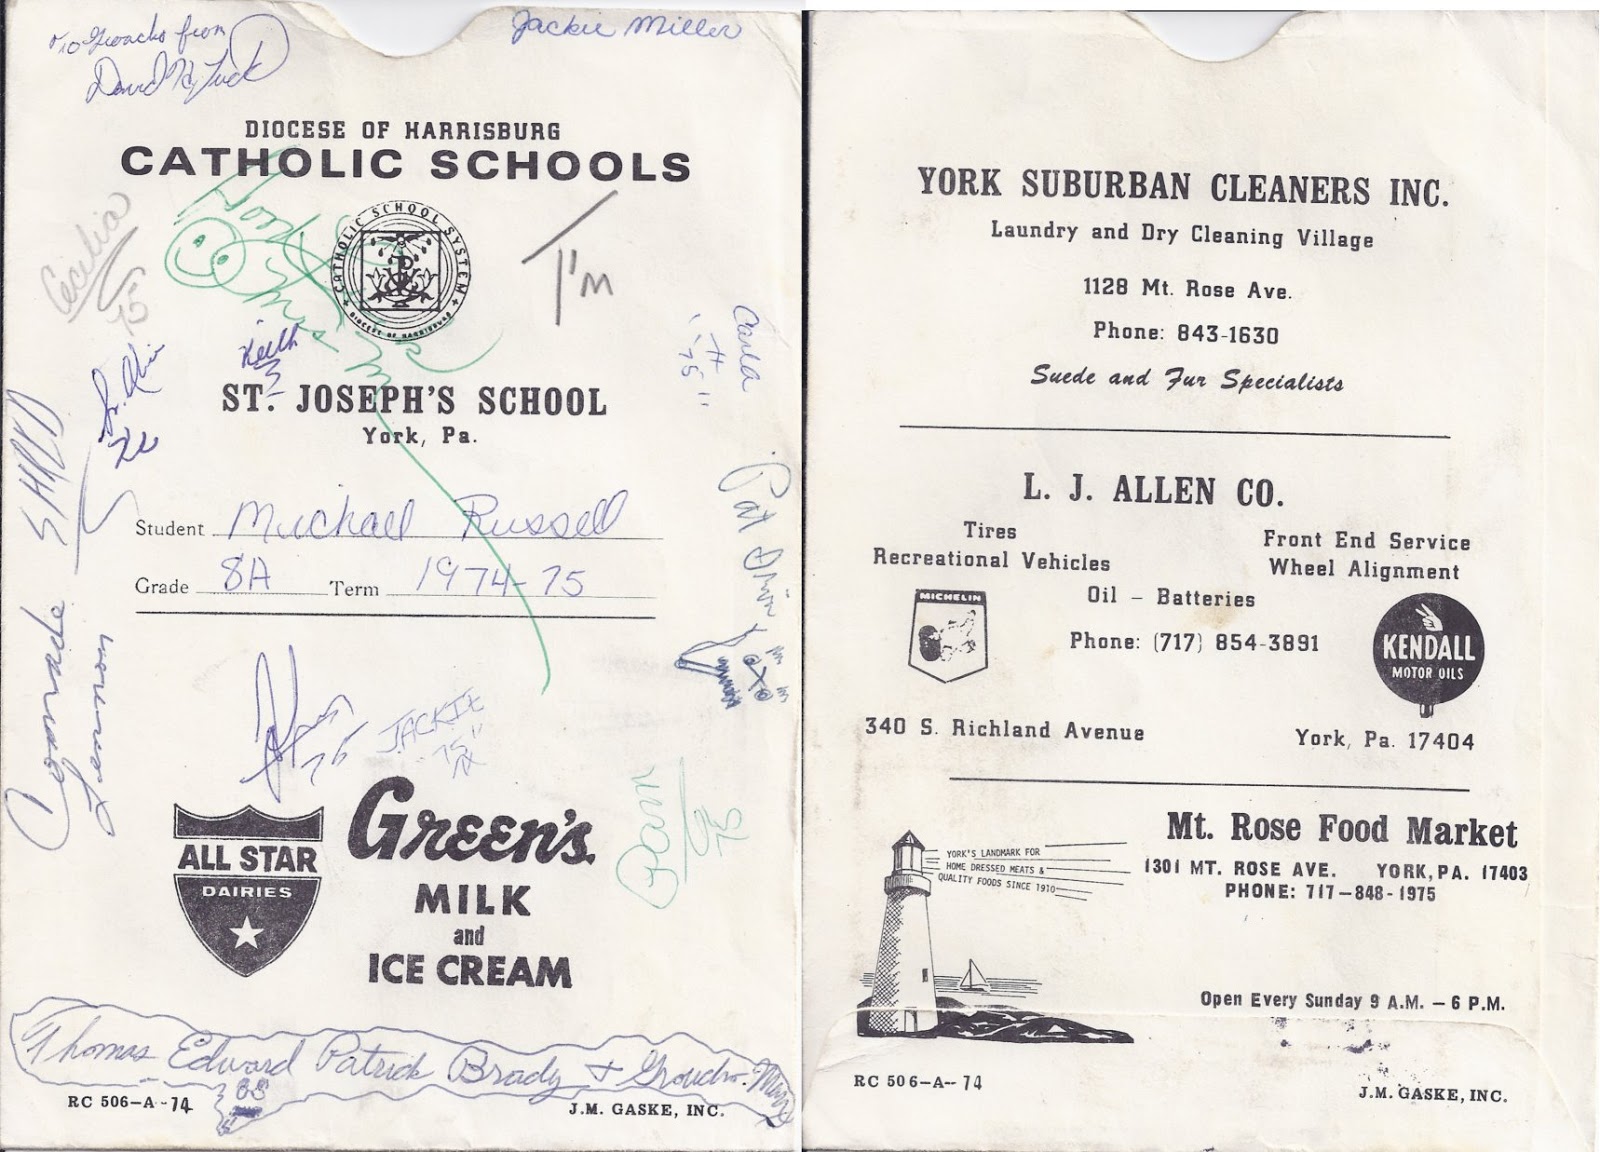 to Groucho from
David H. Luck
Jackie Miller
DIOCESE OF HARRISBURG
CATHOLIC SCHOOLS
Cecilia
75
CATHOLIC SCHOOL SYSTEM
DIOCESE OF HARRISBURG
I'm
Keith
Carla
"H
75"
ST. JOSEPH'S SCHOOL
York, Pa.
Pat
Student Michael Russell
Grade 8A Term 1974-75
Comrade
JACKIE
75"
Green's
MILK
and
ICE CREAM
ALL STAR
DAIRIES
75
Thomas Edward Patrick Brady + Groucho Marx
RC 506-A-74
J.M. GASKE, INC.
YORK SUBURBAN CLEANERS INC.
Laundry and Dry Cleaning Village
1128 Mt. Rose Ave.
Phone: 843-1630
Suede and Fur Specialists
L. J. ALLEN CO.
Tires
Recreational Vehicles
Front End Service
Wheel Alignment
Oil - Batteries
MICHELIN
Phone: (717) 854-3891
KENDALL
MOTOR OILS
340 S. Richland Avenue
York, Pa. 17404
Mt. Rose Food Market
YORK'S LANDMARK FOR
HOME DRESSED MEATS &
QUALITY FOODS SINCE 1910
1301 MT. ROSE AVE. YORK, PA. 17403
PHONE: 717-848-1975
Open Every Sunday 9 A.M. - 6 P.M.
RC 506-A-74
J.M. GASKE, INC.